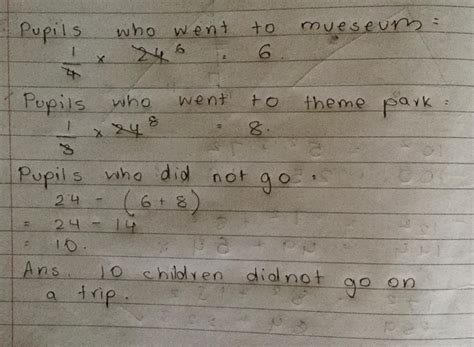 Pupils who went to mueseum =
1/4 × 24 6 = 6.
Pupils who went to theme park =
1/3 × 24 8 = 8.
Pupils who did not go =
24 - (6 + 8)
= 24 - 14
= 10.
Ans. 10 children didnot go on
a trip.